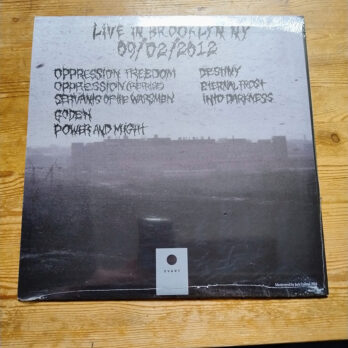 LIVE IN BROOKLYN NY
09/02/2012
OPPRESSION FREEDOM
OPPRESSION (REPRISE)
SERVANTS OF THE WARSMEN
GODEN
POWER AND MIGHT
DESTINY
ETERNAL FROST
INTO DARKNESS
SVART
Mastered by